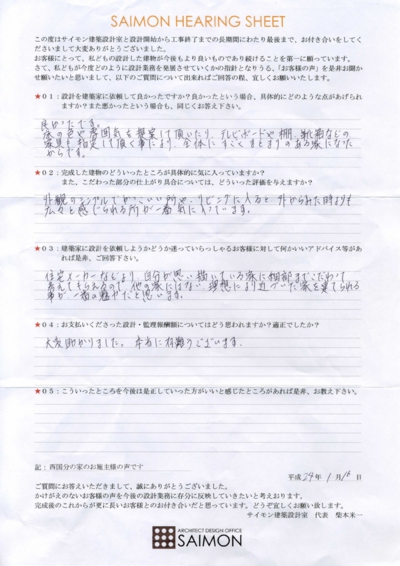 SAIMON HEARING SHEET
この度はサイモン建築設計室と設計開始から工事終了までの長期間にわたり最後まで、お付き合いをしてくださいまして大変ありがとうございました。
お客様にとって、私どもの設計した建物が今後もより良いものであり続けることを第一に願っています。
さて、私どもが今後どのように設計業務を発展させていくかの指針となりうる、「お客様の声」を是非お聞かせ願いたいと思いまして、以下のご質問について出来ればご回答の程、宜しくお願いいたします。
★01：設計を建築家に依頼して良かったですか？良かったという場合、具体的にどのような点があげられますか？また悪かったという場合も、同じくお答え下さい。
良かったです。
家の色や雰囲気を提案して頂いたり、テレビボードや棚、靴箱などの
家具も指定して頂く事により、全体にすごくまとまりのある家になった
からです。
★02：完成した建物のどういったところが具体的に気に入っていますか？
また、こだわった部分の仕上がり具合については、どういった評価を与えますか？
外観がシンプルでかっこいい所や、リビングに入ると外から見た時よりも
広々と感じられる所が一番気に入っています。
★03：建築家に設計を依頼しようかどうか迷っていらっしゃるお客様に対して何かいいアドバイス等があれば是非、ご回答下さい。
住宅メーカーなんかより、自分が思い描いている家に細部までこだわって
考えてもらえるので、他の家にはない、理想により近づいた家を建てられる
事が一番の魅力だと思います。
★04：お支払いくださった設計・監理報酬額についてはどう思われますか？適正でしたか？
大変助かりました。本当に有難うございます。
★05：こういったところを今後は是正していった方がいいと感じたところがあれば是非、お教え下さい。
記：西国分の家のお施主様の声です
平成24年1月16日
ご質問にお答えいただきまして、誠にありがとうございました。
かけがえのないお客様の声を今後の設計業務に存分に反映していきたいと考えております。
完成後のこれからが更に長いお客様とのお付き合いだと思っています。どうぞ宜しくお願い致します。
サイモン建築設計室 代表 柴木米一
ARCHITECT DESIGN OFFICE
SAIMON